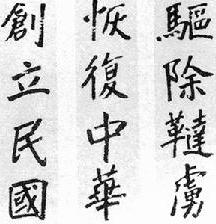 驅除韃虜
恢復中華
創立民國